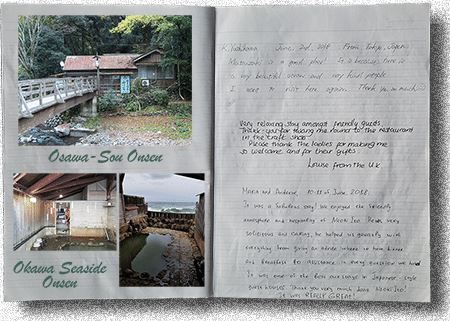 Osawa-Sou Onsen
Okawa Seaside
Onsen
June, 2nd, 2018 From, Tokyo, Japan
is a good place! It is because here is
a very beautiful ocean and very kind people.
I want to visit here again. Thank you so much
Very relaxing stay amongst friendly guests.
Thank-you for taking me round to the restaurant
in the craft shop.
Please thank the ladies for making me
so welcome and for their gifts.
Louise from The U.K
Maria and Andrew, 10-11 of June, 2018.
It was a fabulous stay! We enjoyed the friendly
atmosphere and hospitality of
solicitous and caring, he helped us generally with
everything from giving an advice where to have dinner
and breakfast to assistance in every question we had
It was one of the best in Japanese-style
guest houses. Thank you very much
It was REALLY GREAT!